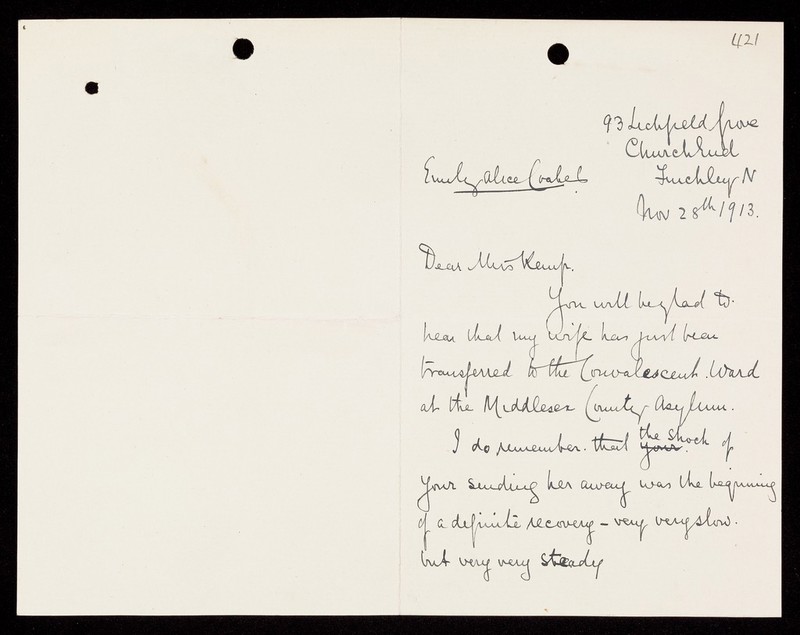 421
93 Lichfield Grove
Church End
Emily Alice Coakes
Finchley N
Nov 28th 1913.
Dear Mrs Kemp.
You will be glad to
hear that my wife has just been
transferred to the Convalescent Ward
at the Middlesex County Asylum.
I do remember. that your. the shock of
your sending her away was the beginning
of a definite recovery - very very slow.
but very very steady